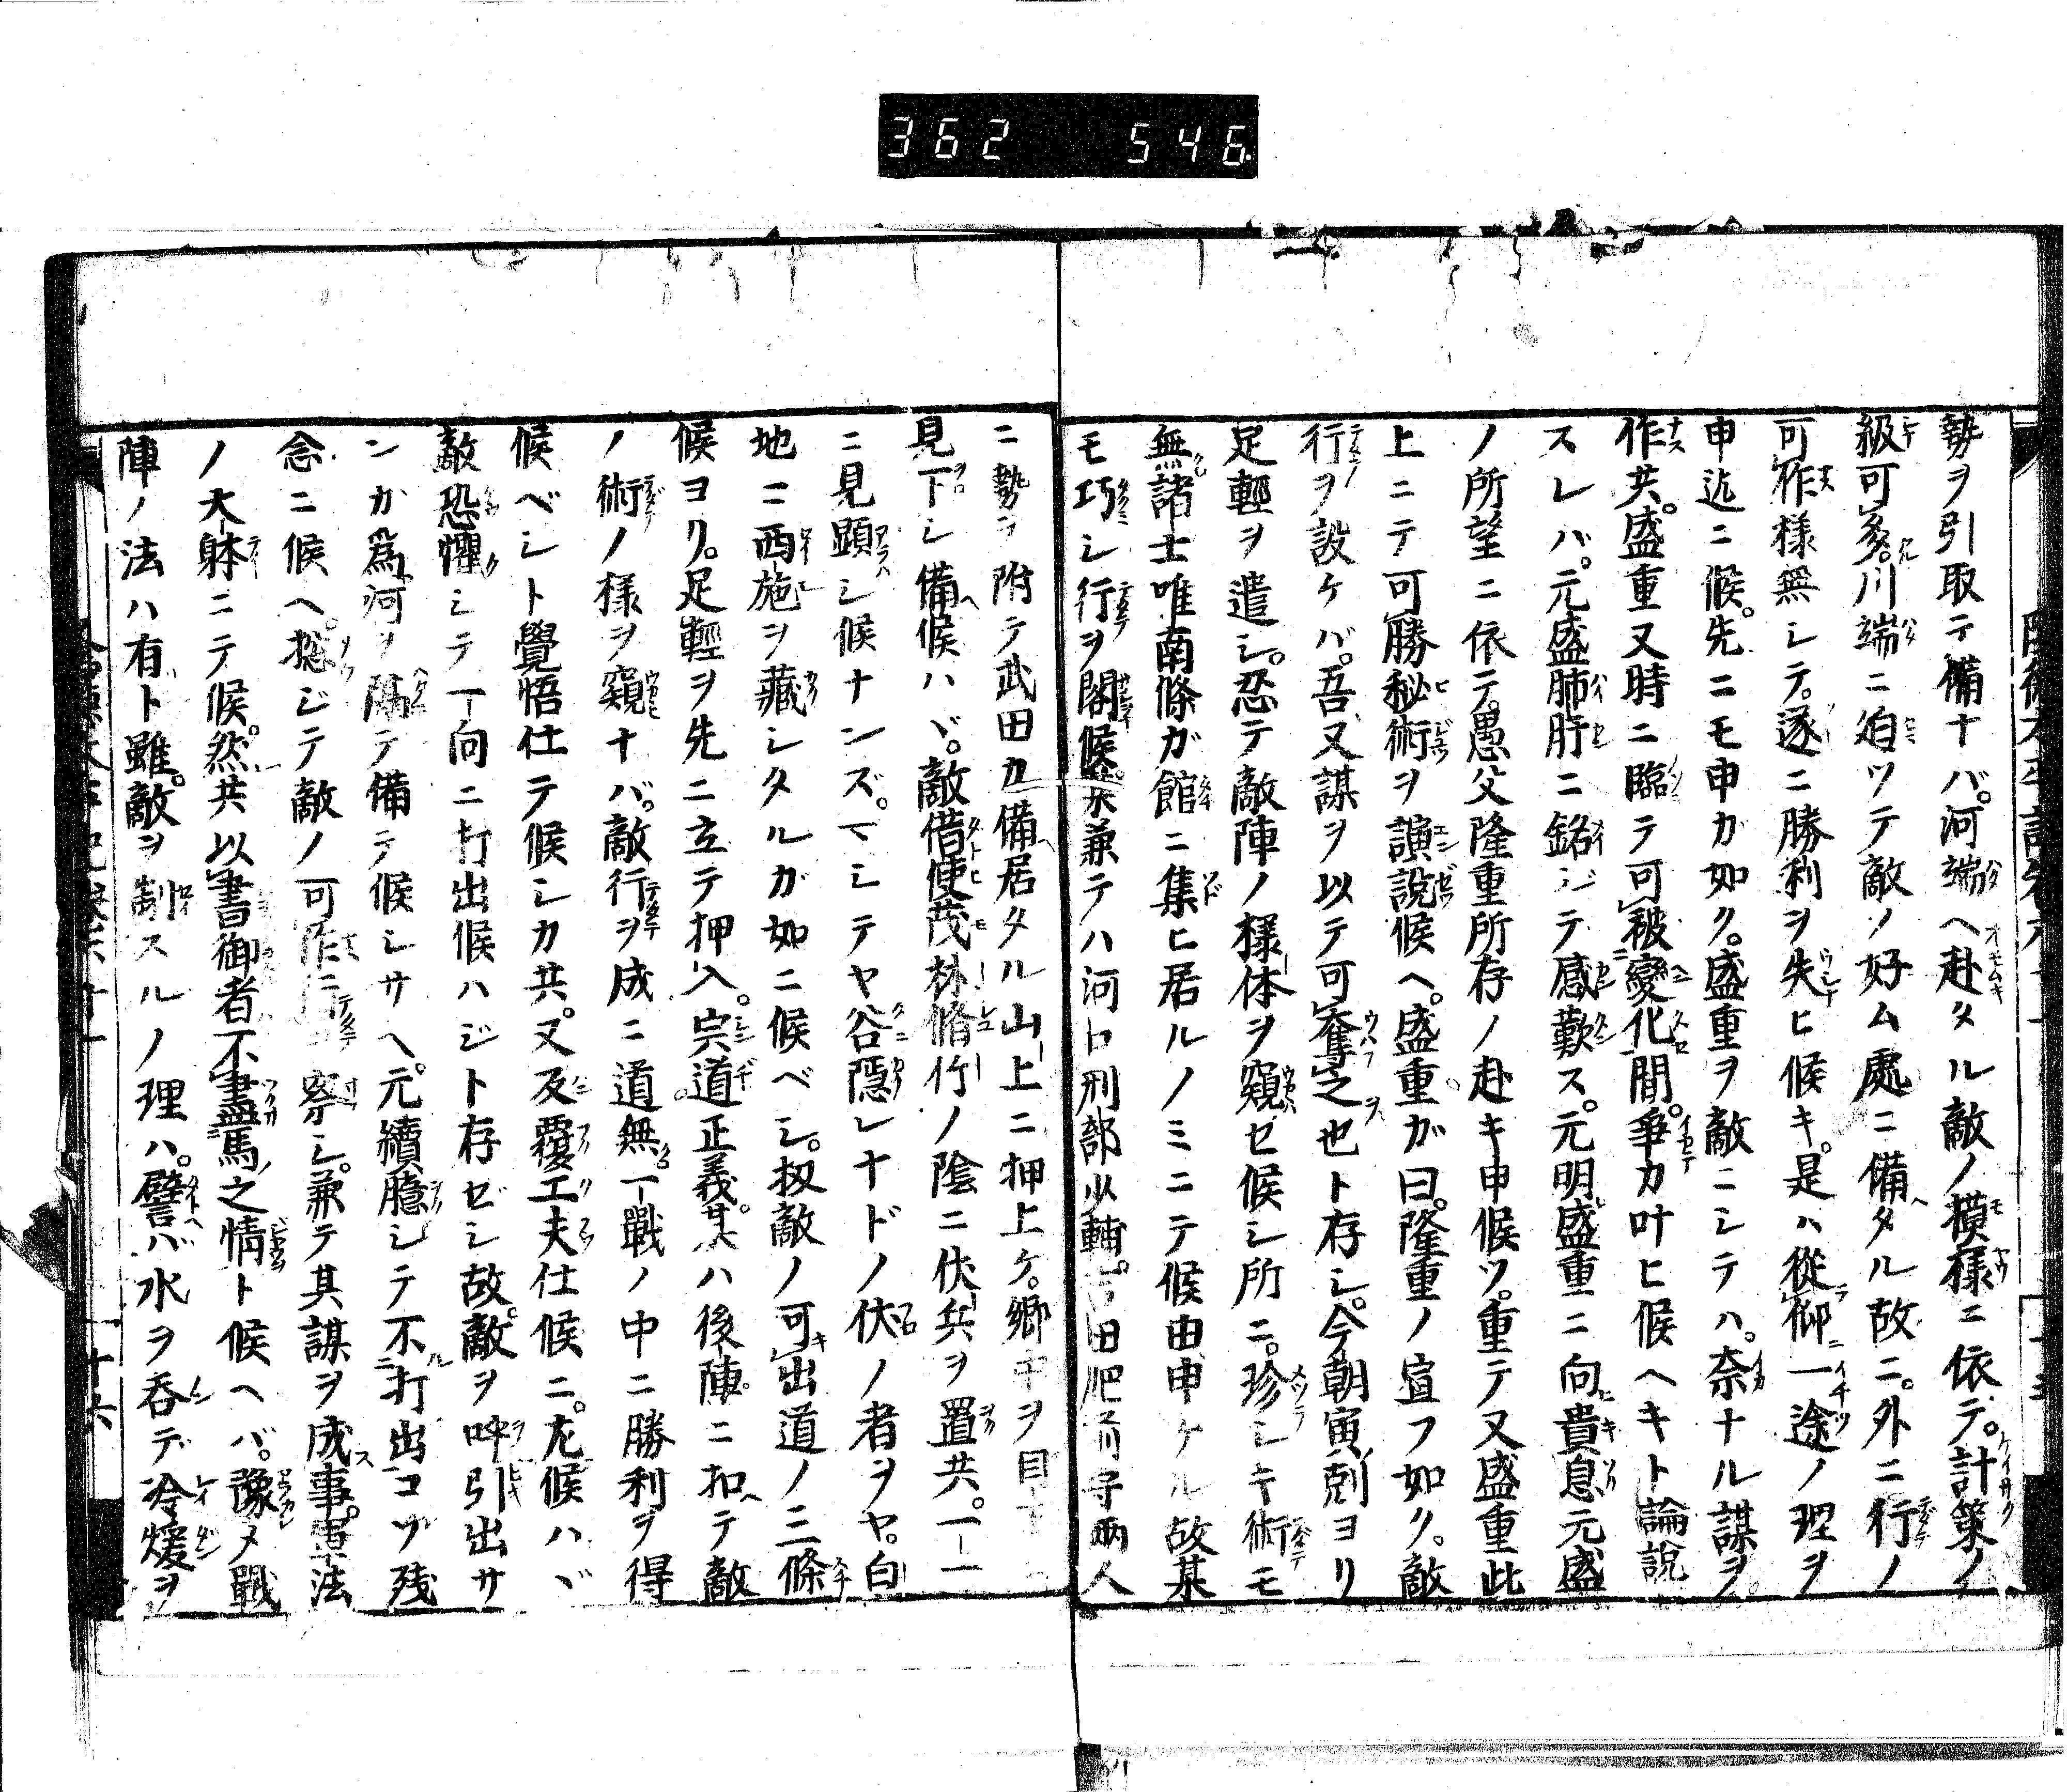 362 546
勢ヲ引取テ備ナバ。河端ヘ赴タル敵ノ摸様ニ依テ。計策ノ
級可多。川端ニ迫ツテ敵ノ好ム處ニ備タル故ニ。外ニ行ノ
可作様無シテ。遂ニ勝利ヲ失ヒ候キ。是ハ從仰一途ノ理ヲ
申迄ニ候。先ニモ申ガ如ク。盛重ヲ敵ニシテハ。奈ナル謀ヲ
作共。盛重又時ニ臨テ可被變化間。爭カ叶ヒ候ヘキト論説
スレハ。元盛肺肝ニ銘ジテ感歎ス。元明盛重ニ向貴息元盛
ノ所望ニ依テ。愚父隆重所存ノ赴キ申候ツ。重テ又盛重此
上ニテ可勝秘術ヲ演説候ヘ。盛重ガ曰。隆重ノ宣フ如ク。敵
行ヲ設ケバ。吾又謀ヲ以テ可奪之也ト存シ。今朝寅剋ヨリ
足輕ヲ遣シ。忍テ敵陣ノ様体ヲ窺セ候シ所ニ。珍シキ術モ
無諸士唯南條ガ館ニ集ヒ居ルノミニテ候由申ケル故某
モ巧シ行ヲ閣候。兼テハ河口刑部少輔。吉田肥前守兩人
ニ勢ヲ附テ武田カ備居タル山上ニ押上ケ。郷中ヲ目下ニ
見下シ備候ハヾ。敵借使茂林脩竹ノ陰ニ伏兵ヲ置共。一一
ニ見顕シ候ナンズ。マシテヤ谷隱レナドノ伏ノ者ヲヤ。白
地ニ西施ヲ藏シタルガ如ニ候ベシ。扨敵ノ可出道ノ三條
候ヨリ。足輕ヲ先ニ立テ押入。宍道正義。某ハ後陣ニ扣テ敵
ノ術ノ様ヲ窺ナバ。敵行ヲ成ニ道無。一戰ノ中ニ勝利ヲ得
候ベシト覺悟仕テ候シカ共。又反覆工夫仕候ニ。尤候ハヾ
敵恐懼シテ一向ニ打出候ハジト存ゼシ故。敵ヲ呼引出サ
ンカ為河ヲ隔テ備テ候シサヘ。元續臆シテ不打出コソ残
念ニ候ヘ。惣ジテ敵ノ可作行ニ察シ。兼テ其謀ヲ成事。軍法
ノ大躰ニテ候。然共以書御者不盡馬之情ト候ヘバ。豫メ戰
陣ノ法ハ有ト雖。敵ヲ制スルノ理ハ。譬バ水ヲ呑デ冷煖ヲ
十六